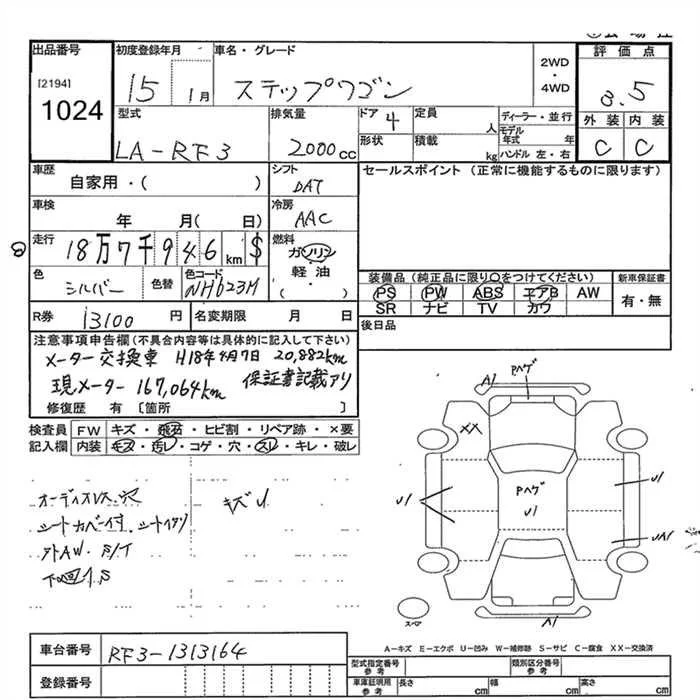 出品番号 初度登録年月 車名・グレード 2WD・4WD 評価点
[2194]
1024
15 1月 ステップワゴン 3.5
型式 排気量 ドア 4 定員 人 ディーラー・並行 外装 内装
LA-RF3 2000cc 形状 積載 kg モデル年式 年 ハンドル 左・右 C C
車歴 自家用・( ) シフト DAT セールスポイント (正常に機能するものに限ります)
車検 年 月( 日) 冷房 AAC
走行 18万7千946km $ 燃料 ガソリン・軽油・( )
色 シルバー 色替 色コード NH623M
装備品(純正品に限り○をつけてください) 新車保証書
PS PW ABS エアB AW 有・無
SR ナビ TV カワ
R券 13100円 名変期限 月 日 後日品
注意事項申告欄(不具合内容等は具体的に記入して下さい)
メーター交換車 H18年4月7日 20,882km
現メーター 167,064km 保証書記載アリ
修復歴 有 [箇所 ]
検査員 FW キズ・飛石・ヒビ割・リペア跡・×要
記入欄 内装 キズ・汚レ・コゲ・穴・スレ・キレ・破レ
オーディオレス.穴 キズU
シートカバー付.シートイタリ
外AW. S/T
下回1.S
A1 Pハゲ
XX
Pハゲ
U1
U1
U1
UA1
A1
スペア
A-キズ E-エクボ U-凹み W-補修跡 S-サビ C-腐食 XX-交換済
車台番号 RF3-1313164
登録番号
型式指定番号 参考 類別区分番号 参考
車庫証明用 参考 長さ cm 幅 cm 高さ cm